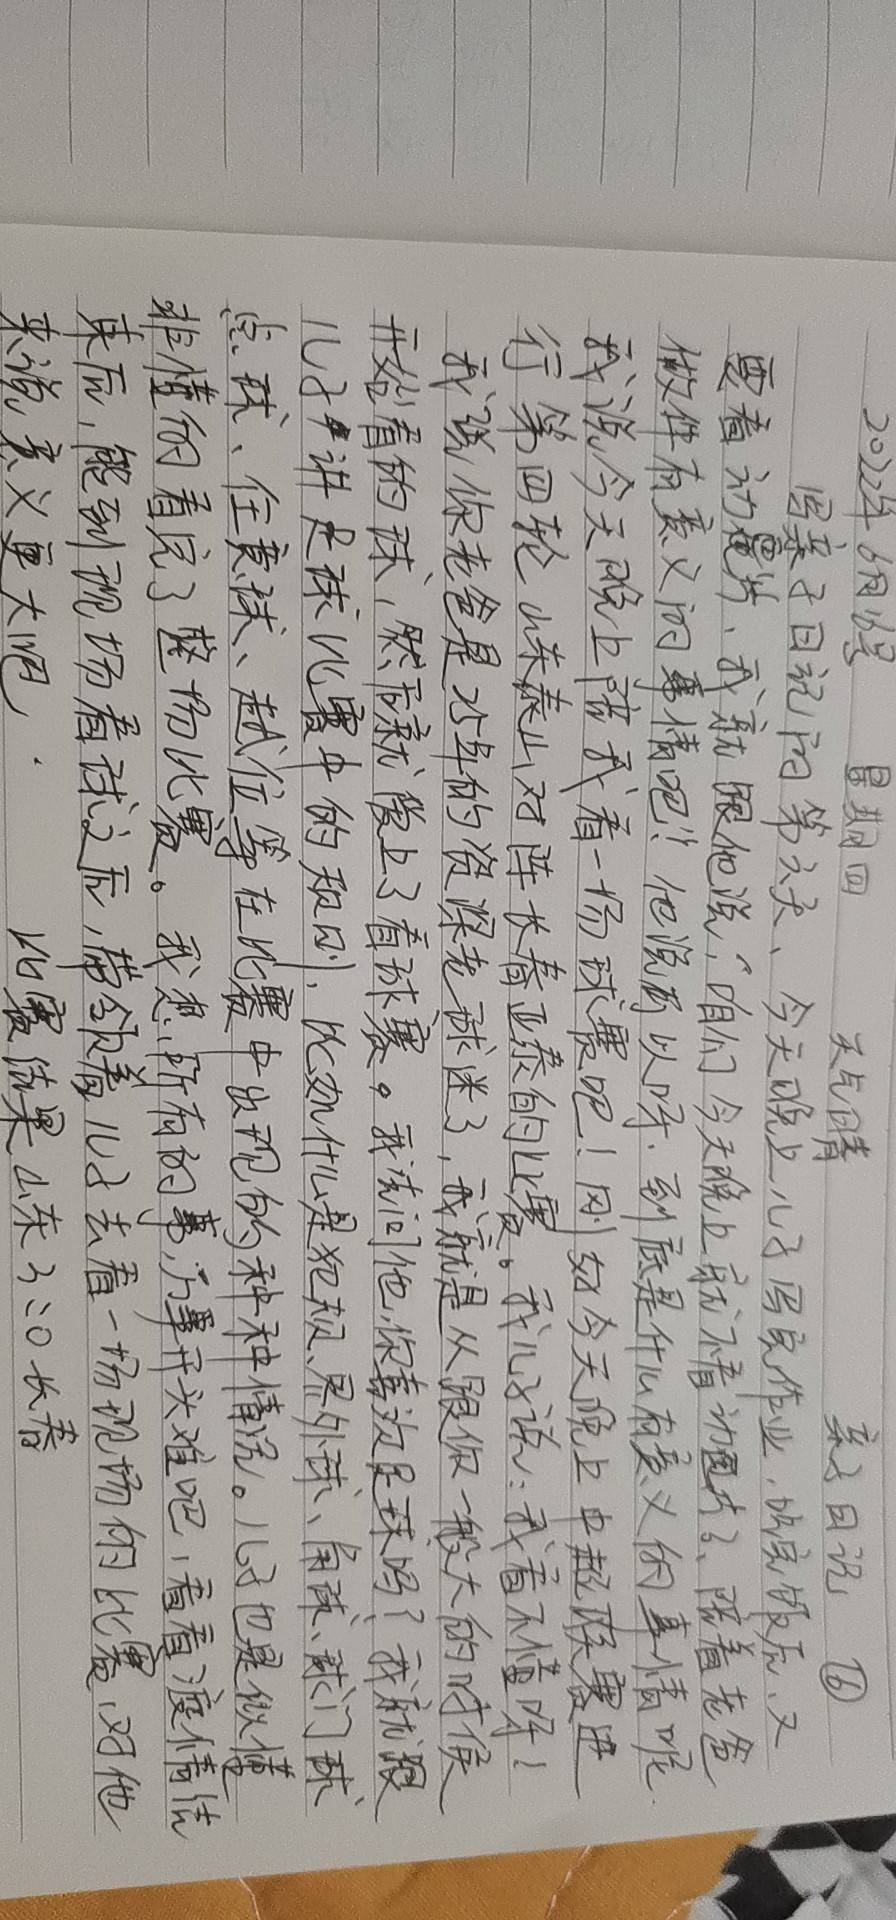 2022年6月16号 星期四 天气晴 亲子日记 ⑯
写亲子日记的第六天、今天晚上儿子写完作业、吃完饭后、又
要看动画片、我就跟他说,“咱们今天晚上就不看动画片了、陪着老爸
做件有意义的事情吧!”他说可以呀.到底是什么有意义的事情呢.
我说今天晚上陪我看一场球赛吧!刚好今天晚上中超联赛进
行第四轮山东泰山对阵长春亚泰的比赛。我儿子说:我看不懂呀!
我说你老爸是25年的资深老球迷了,我就是从跟你一般大的时候
开始看的球,然后就爱上了看球赛。我试问他,你喜欢足球吗?我就跟
儿子讲足球比赛中的规则,比如什么是犯规、界外球、角球、球门球
点球、任意球、越位等在比赛中出现的种种情况。儿子也是似懂
非懂的看完了整场比赛。我想,所有的事,万事开头难吧,看看疫情结
束后,能到现场看球之后,带领着儿子去看一场现场的比赛,对他
来说意义更大吧. 比赛结果山东3:0长春